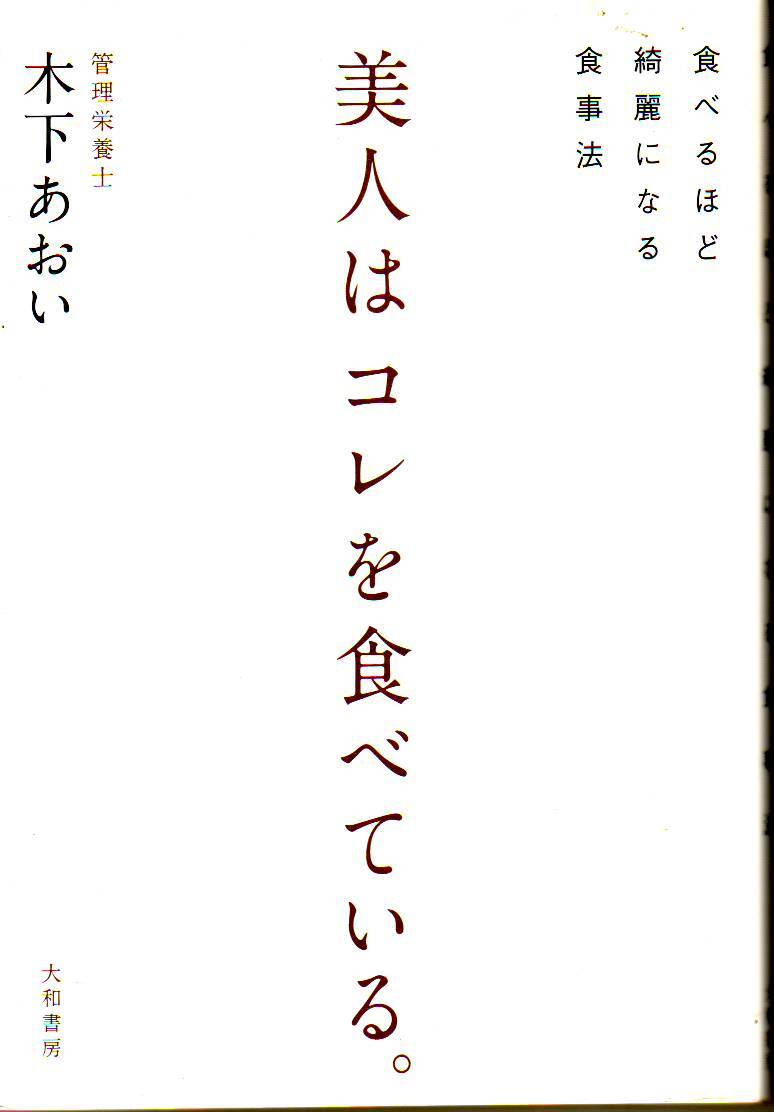 食べるほど
綺麗になる
食事法
美人はコレを食べている。
管理栄養士
木下あおい
大和書房